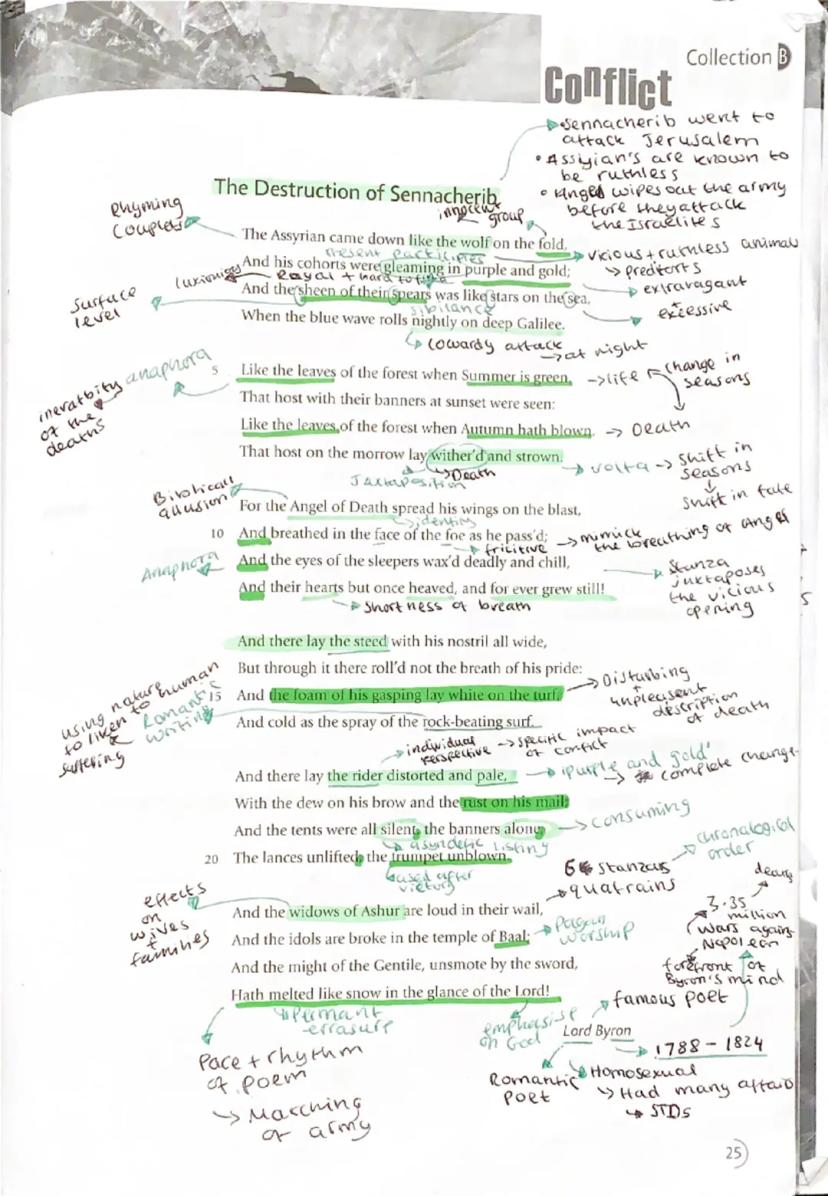 Collection B
Conflict
Sennacherib went to
attack Jerusalem
• Assyian's are known to
be ruthless
• Angel wipes out the army
before they attack
the Israelites
The Destruction of Sennacherib
Rhyming
Couplets
innocent
group
The Assyrian came down like the wolf on the fold,
vicious + ruthless animal
↳ preditors
present participles
And his cohorts were gleaming in purple and gold;
extravagant
luxionious
Royal + hard to
And the sheen of their spears was like stars on the sea,
excessive
Surface
level
sibilance
When the blue wave rolls nightly on deep Galilee.
↳ cowardy attack
→ at night
5 Like the leaves of the forest when Summer is green,
→ life
change in
seasons
anaphora
inevatbity
of the
deaths
That host with their banners at sunset were seen:
Like the leaves of the forest when Autumn hath blown,
→ Death
That host on the morrow lay wither'd and strown.
↳ Death
Juxtaposition
volta → Shift in
seasons
↓
Shift in fate
Biblical
allusion
For the Angel of Death spread his wings on the blast,
identity
10 And breathed in the face of the foe as he pass'd;
→ fricitive
→ mimick
the breathing of Angel
Anaphora
And the eyes of the sleepers wax'd deadly and chill,
And their hearts but once heaved, and for ever grew still!
→ Shortness of breath
Stanza
juxtaposes
the vicious
opening
And there lay the steed with his nostril all wide,
But through it there roll'd not the breath of his pride:
15 And the foam of his gasping lay white on the turf,
Disturbing
+
unpleasent
description
of death
using nature
to liken to human
suffering
Romantic
writing
And cold as the spray of the rock-beating surf.
individual
perspective → specific impact
of conflict
And there lay the rider distorted and pale,
'purple and gold'
→ complete change
With the dew on his brow and the rust on his mail:
And the tents were all silent, the banners alone,
→ consuming
asyndetic listing
20 The lances unlifted, the trumpet unblown.
used after
victory
6 Stanzas
quatrains
chronological
order
effects
on
wives
+
families
And the widows of Ashur are loud in their wail,
And the idols are broke in the temple of Baal;
Pagan
worship
And the might of the Gentile, unsmote by the sword,
Hath melted like snow in the glance of the Lord!
permant
errasure
emphasise
on God
3.35
million
wars against
Napolean
forefront of
Byron's mind
famous poet
Lord Byron
1788 – 1824
Romantic
Poet
Homosexual
↳ Had many affairs
↳ STDs
Pace + rhythm
of poem
↳ Marching
of army
25